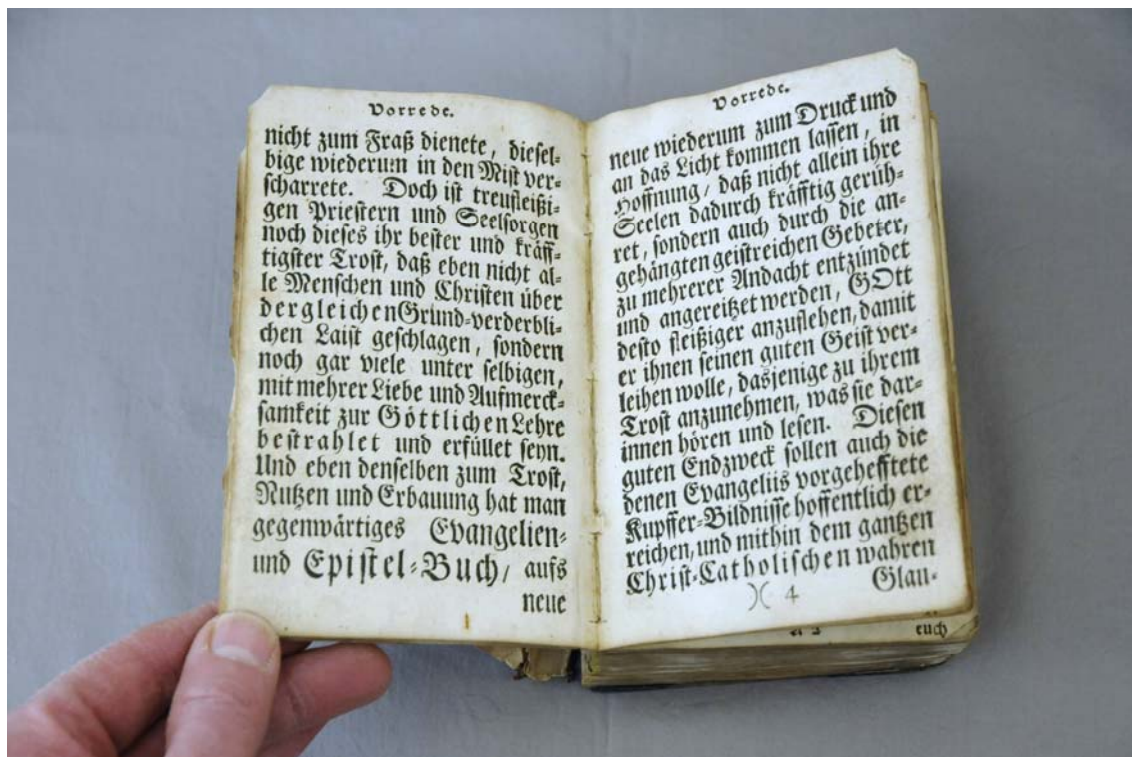 Vorrede.
nicht zum Fraß dienete, diesel-
bige wiederum in den Mist ver-
scharrete. Doch ist treufleißi-
gen Priestern und Seelsorgen
noch dieses ihr bester und kräff-
tigster Trost, daß eben nicht al-
le Menschen und Christen über
dergleichen Grund-verderbli-
chen Laist geschlagen, sondern
noch gar viele unter selbigen,
mit mehrer Liebe und Aufmerck-
samkeit zur Göttlichen Lehre
bestrahlet und erfüllet seyn.
Und eben denselben zum Trost,
Nutzen und Erbauung hat man
gegenwärtiges Evangelien-
und Epistel-Buch, aufs
neue
Vorrede.
neue wiederum zum Druck und
an das Licht kommen lassen, in
Hoffnung, daß nicht allein ihre
Seelen dadurch kräfftig gerüh-
ret, sondern auch durch die an-
gehängten geistreichen Gebeter,
zu mehrerer Andacht entzündet
und angereitzet werden, GOtt
desto fleißiger anzuflehen, damit
er ihnen seinen guten Geist ver-
leihen wolle, dasjenige zu ihrem
Trost anzunehmen, was sie dar-
innen hören und lesen. Diesen
guten Endzweck sollen auch die
denen Evangeliis vorgehefftete
Kupffer-Bildnisse hoffentlich er-
reichen, und mithin dem gantzen
Christ-Catholischen wahren
)( 4 Glau-
euch